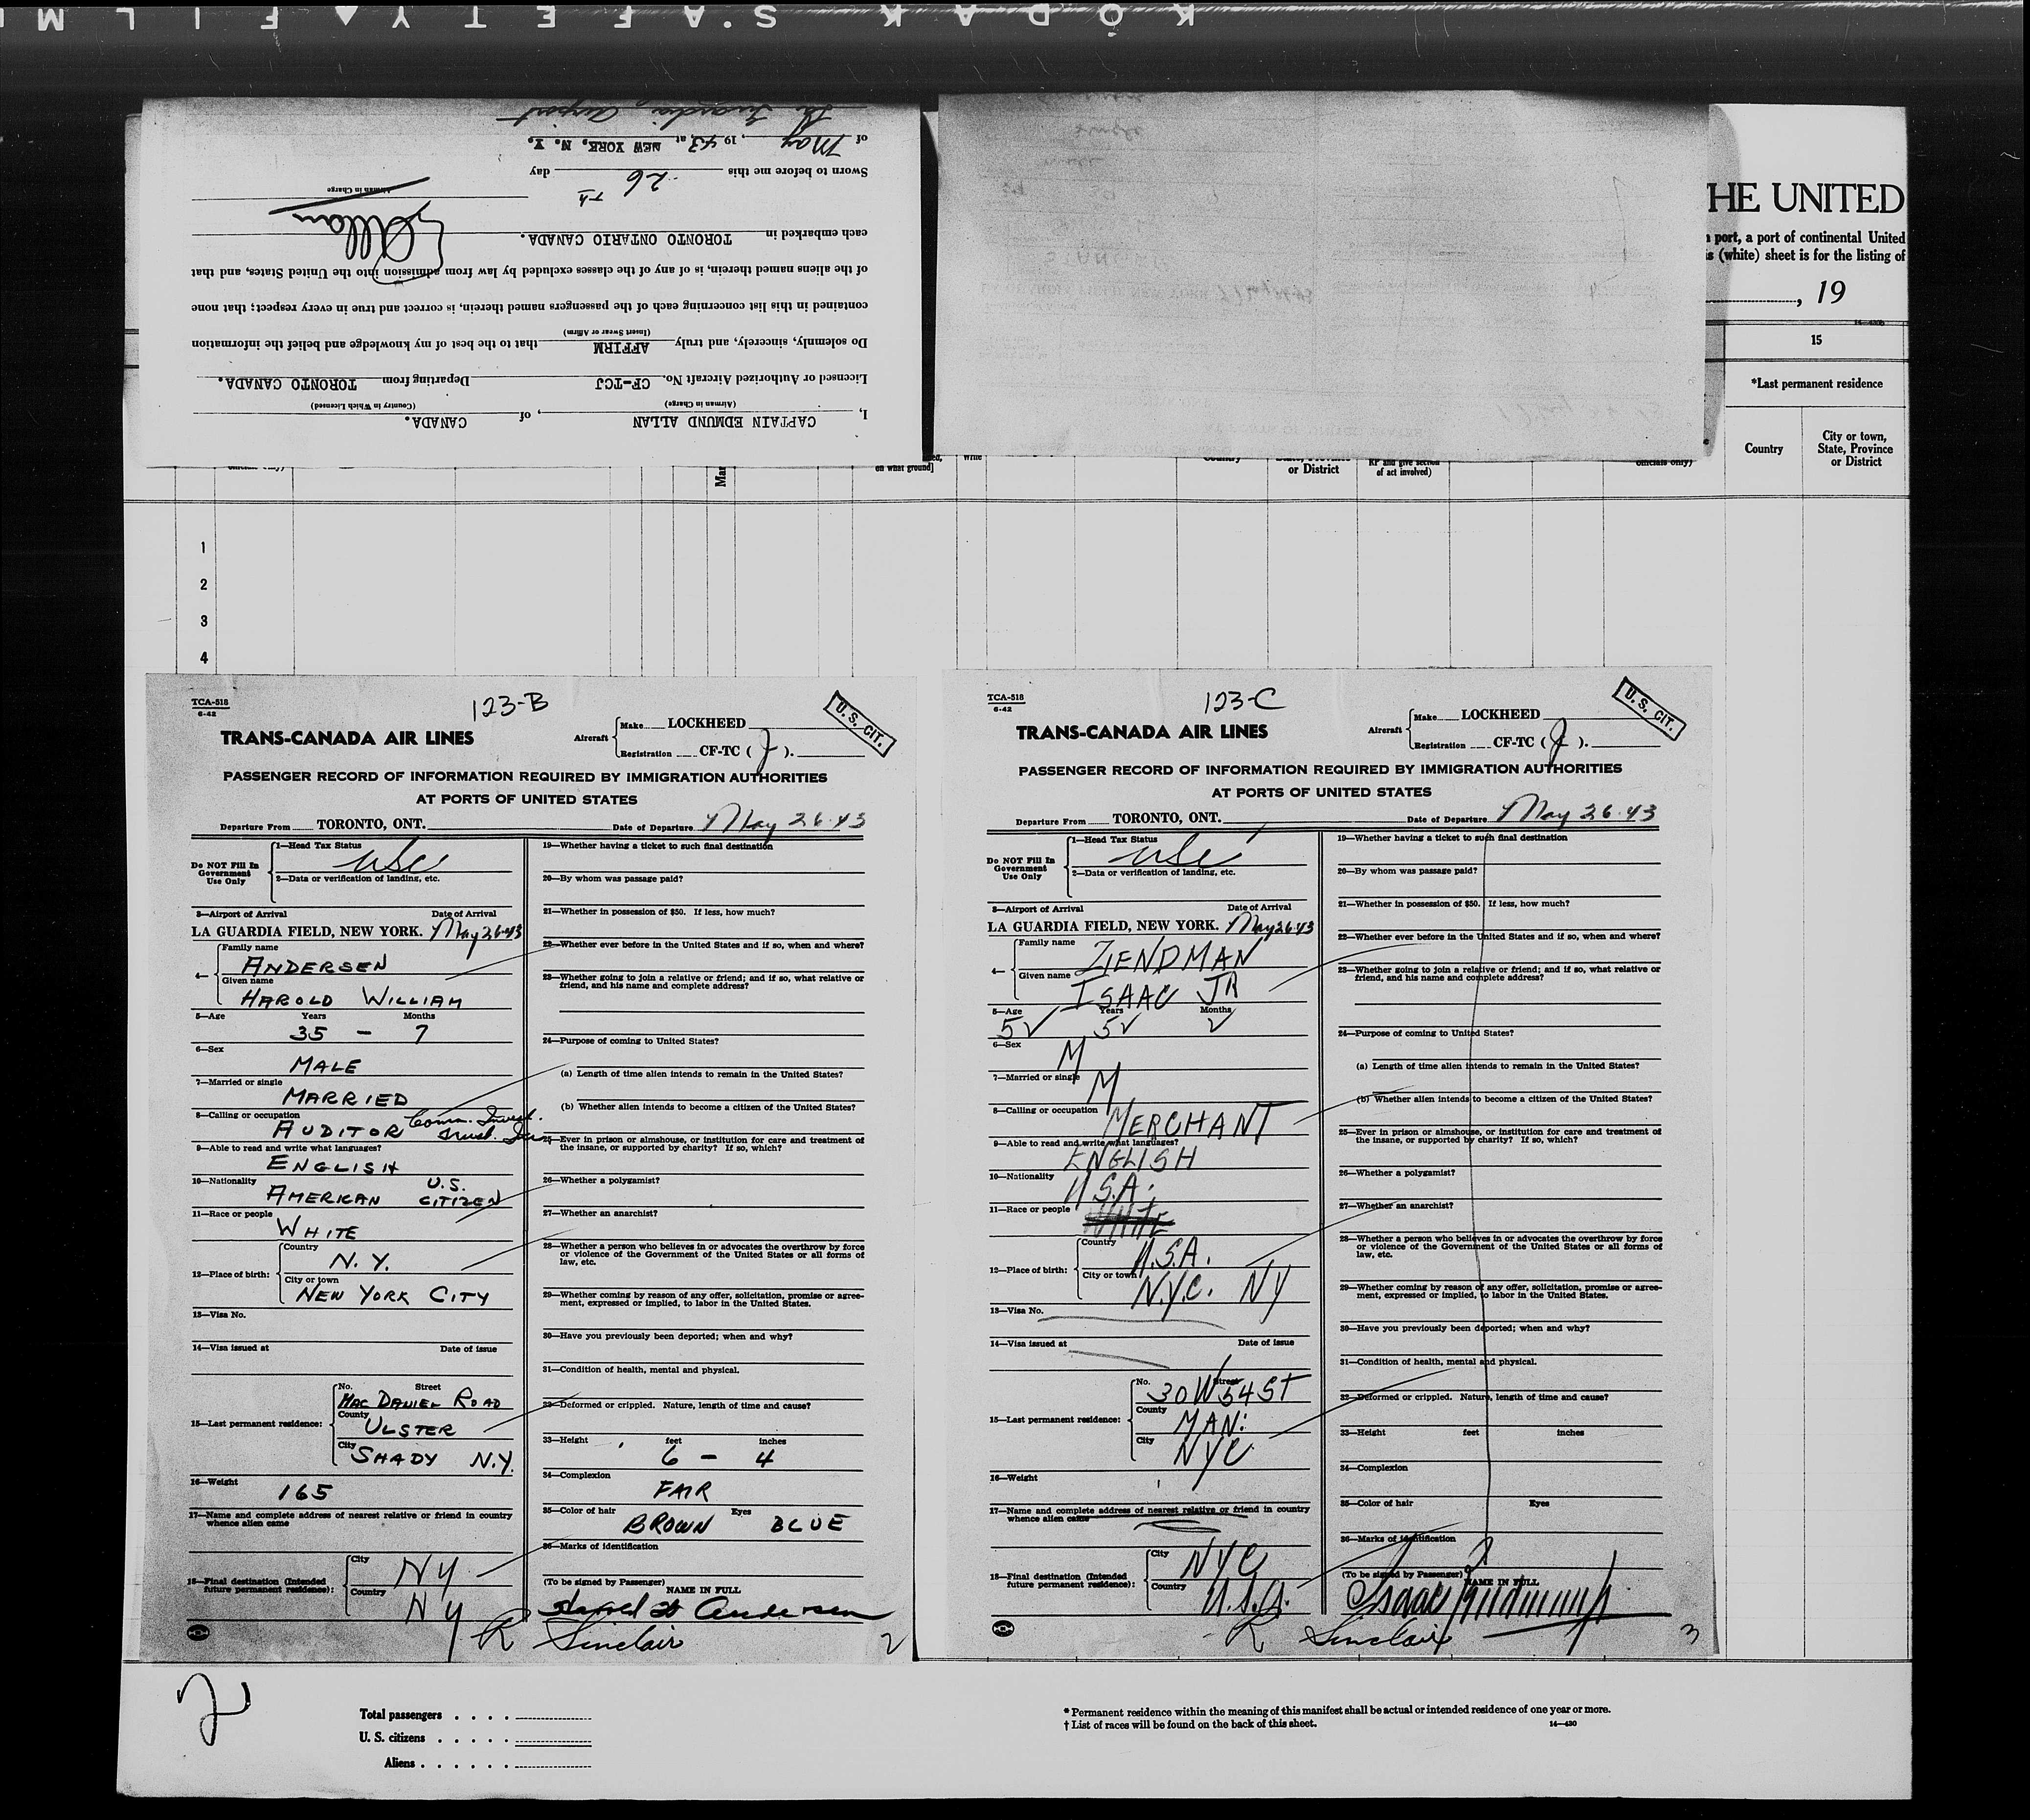 KODAK SAFETY FILM
La Guardia Airport
of May, 1943, at NEW YORK, N. Y.
Sworn to before me this 26 Th day
Airman in Charge
Allan
each embarked in TORONTO ONTARIO CANADA.
of the aliens named therein, is of any of the classes excluded by law from admission into the United States, and that
contained in this list concerning each of the passengers named therein, is correct and true in every respect; that none
(Insert Swear or Affirm)
Do solemnly, sincerely, and truly AFFIRM that to the best of my knowledge and belief the information
Licensed or Authorized Aircraft No. CF-TCJ Departing from TORONTO CANADA.
(Airman in Charge) (Country in Which Licensed)
I, CAPTAIN EDMUND ALLAN, of CANADA.
HE UNITED
port, a port of continental United
(white) sheet is for the listing of
, 19
15
*Last permanent residence
Country
City or town,
State, Province
or District
on what ground]
or District
RP and give section
of act involved)
officials only)
1
2
3
4
TCA-518
6-42
123-B
U. S. CIT.
TRANS-CANADA AIR LINES
Aircraft
Make LOCKHEED
Registration CF-TC ( J ).
PASSENGER RECORD OF INFORMATION REQUIRED BY IMMIGRATION AUTHORITIES
AT PORTS OF UNITED STATES
Departure From TORONTO, ONT. Date of Departure May 26·43
Do NOT Fill In
Government
Use Only
1—Head Tax Status
USC
2—Data or verification of landing, etc.
3—Airport of Arrival Date of Arrival
LA GUARDIA FIELD, NEW YORK. May 26·43
4—
Family name
ANDERSEN
Given name
HAROLD WILLIAM
5—Age Years Months
35 — 7
6—Sex
MALE
7—Married or single
MARRIED
8—Calling or occupation
AUDITOR Comm. Invest. Trust.
9—Able to read and write what languages?
ENGLISH
10—Nationality
AMERICAN U.S. CITIZEN
11—Race or people
WHITE
12—Place of birth:
Country
N. Y.
City or town
NEW YORK CITY
13—Visa No.
14—Visa issued at Date of issue
15—Last permanent residence:
No. Street
MAC DANIEL ROAD
County
ULSTER
City
SHADY N.Y.
16—Weight
165
17—Name and complete address of nearest relative or friend in country
whence alien came
18—Final destination (Intended
future permanent residence):
City
NY
Country
NY
19—Whether having a ticket to such final destination
20—By whom was passage paid?
21—Whether in possession of $50. If less, how much?
22—Whether ever before in the United States and if so, when and where?
23—Whether going to join a relative or friend; and if so, what relative or
friend, and his name and complete address?
24—Purpose of coming to United States?
(a) Length of time alien intends to remain in the United States?
(b) Whether alien intends to become a citizen of the United States?
25—Ever in prison or almshouse, or institution for care and treatment of
the insane, or supported by charity? If so, which?
26—Whether a polygamist?
27—Whether an anarchist?
28—Whether a person who believes in or advocates the overthrow by force
or violence of the Government of the United States or all forms of
law, etc.
29—Whether coming by reason of any offer, solicitation, promise or agree-
ment, expressed or implied, to labor in the United States.
30—Have you previously been deported; when and why?
31—Condition of health, mental and physical.
32—Deformed or crippled. Nature, length of time and cause?
33—Height feet inches
6 — 4
34—Complexion
FAIR
35—Color of hair Eyes
BROWN BLUE
36—Marks of identification
(To be signed by Passenger) NAME IN FULL
Harold W Andersen
R Sinclair
2
TCA-518
6-42
123-C
U. S. CIT.
TRANS-CANADA AIR LINES
Aircraft
Make LOCKHEED
Registration CF-TC ( J ).
PASSENGER RECORD OF INFORMATION REQUIRED BY IMMIGRATION AUTHORITIES
AT PORTS OF UNITED STATES
Departure From TORONTO, ONT. Date of Departure May 26·43
Do NOT Fill In
Government
Use Only
1—Head Tax Status
USC
2—Data or verification of landing, etc.
3—Airport of Arrival Date of Arrival
LA GUARDIA FIELD, NEW YORK. May 26·43
4—
Family name
ZIENDMAN
Given name
ISAAC JR
5—Age Years Months
52 52 2
6—Sex
M
7—Married or single
M
8—Calling or occupation
MERCHANT
9—Able to read and write what languages?
ENGLISH
10—Nationality
U.S.A.
11—Race or people
WHITE
12—Place of birth:
Country
U.S.A.
City or town
N.Y.C. NY
13—Visa No.
14—Visa issued at Date of issue
15—Last permanent residence:
No. Street
30 W 54 ST
County
MAN:
City
NYC
16—Weight
17—Name and complete address of nearest relative or friend in country
whence alien came
18—Final destination (Intended
future permanent residence):
City
NYC
Country
U.S.A.
19—Whether having a ticket to such final destination
20—By whom was passage paid?
21—Whether in possession of $50. If less, how much?
22—Whether ever before in the United States and if so, when and where?
23—Whether going to join a relative or friend; and if so, what relative or
friend, and his name and complete address?
24—Purpose of coming to United States?
(a) Length of time alien intends to remain in the United States?
(b) Whether alien intends to become a citizen of the United States?
25—Ever in prison or almshouse, or institution for care and treatment of
the insane, or supported by charity? If so, which?
26—Whether a polygamist?
27—Whether an anarchist?
28—Whether a person who believes in or advocates the overthrow by force
or violence of the Government of the United States or all forms of
law, etc.
29—Whether coming by reason of any offer, solicitation, promise or agree-
ment, expressed or implied, to labor in the United States.
30—Have you previously been deported; when and why?
31—Condition of health, mental and physical.
32—Deformed or crippled. Nature, length of time and cause?
33—Height feet inches
34—Complexion
35—Color of hair Eyes
36—Marks of identification
(To be signed by Passenger) NAME IN FULL
Isaac
R Sinclair
3
2
Total passengers
U. S. citizens
Aliens
* Permanent residence within the meaning of this manifest shall be actual or intended residence of one year or more.
† List of races will be found on the back of this sheet. 14—430